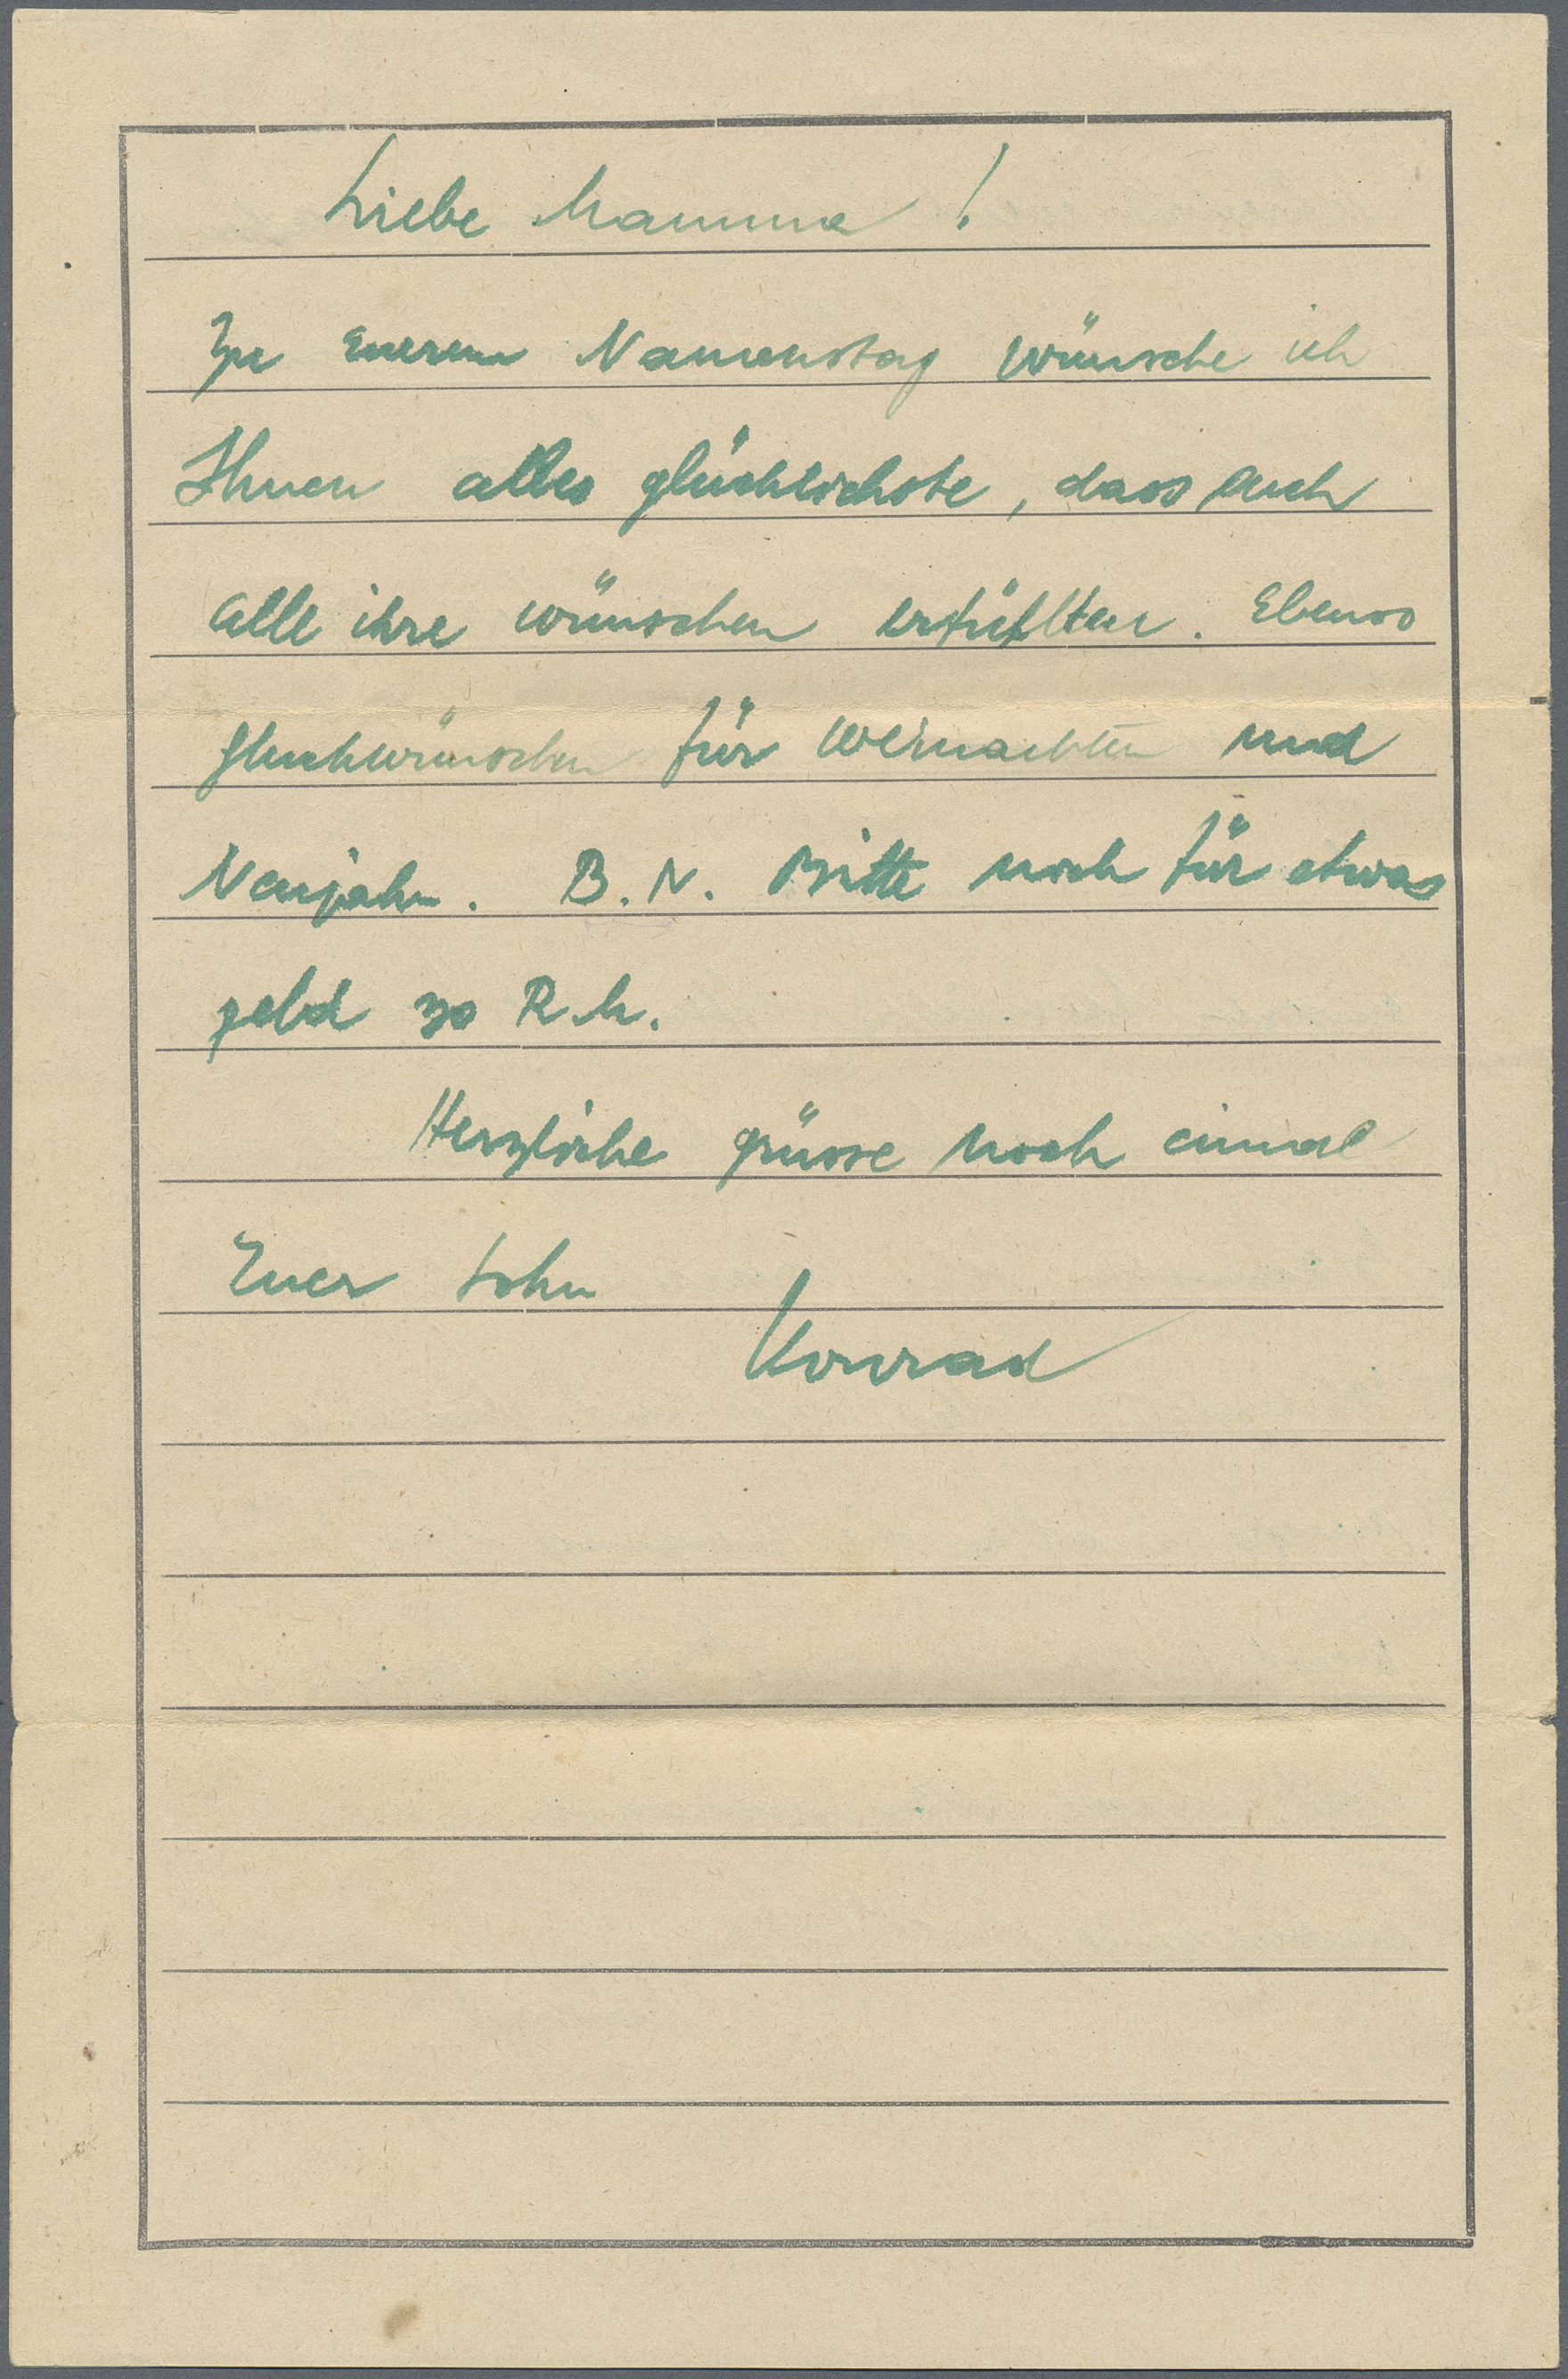 Liebe Mamma !
Zu Euerem Namenstag wünsche ich
Ihnen alles glücklichste, dass auch
alle ihre wünschen erfühlten. Ebenso
gluckwünschen für weinachten und
Neujahr. B. N. Bitte noch für etwas
geld 30 R.M.
Herzliche grüsse noch einmal
Euer Sohn
Konrad